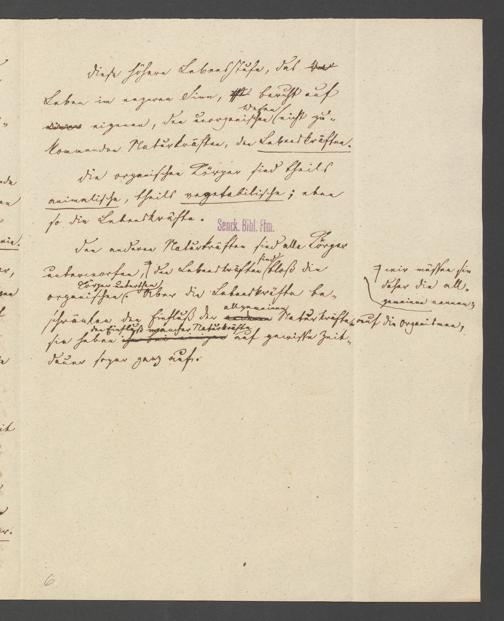 diese höhere Lebensstufe, das
Leben im engeren Sinn, beruht auf
eigenen, den unorganischen Wesen nicht zu-
kommenden Naturkräften, den Lebenskräften.
die organischen Körper sind theils
animalische, theils vegetabilische; eben
so die Lebenskräfte.
Senck. Bibl. Ffm.
Den anderen Naturkräften sind alle Körper
unterworfen, den Lebenskräften sind bloß die
organischen Körper. Aber die Lebenskräfte be-
schränken den Einfluß der allgemeinen Naturkräfte auf die Organismen,
sie heben den Einfluß mancher Naturkräfte auf gewisse Zeit-
dauer sogar ganz auf.
wir müssen sie
daher die all-
gemeinen nennen
6